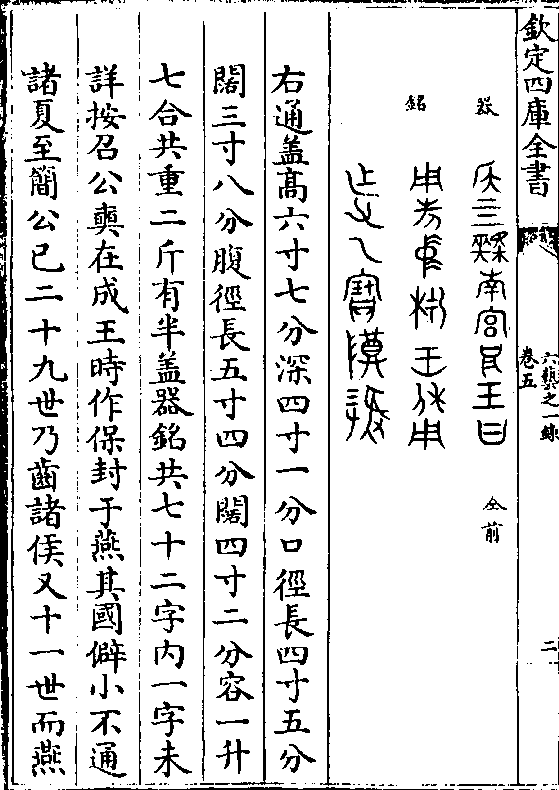 欽定四庫全書
六藝之一錄
卷五
二
器
銘
全前
右通蓋高六寸七分深四寸一分口徑長四寸五分
闊三寸八分腹徑長五寸四分闊四寸二分容一升
七合共重二斤有半蓋器銘共七十二字內一字未
詳按召公奭在成王時作保封于燕其國僻小不通
諸夏至簡公已二十九世乃齒諸侯又十一世而燕